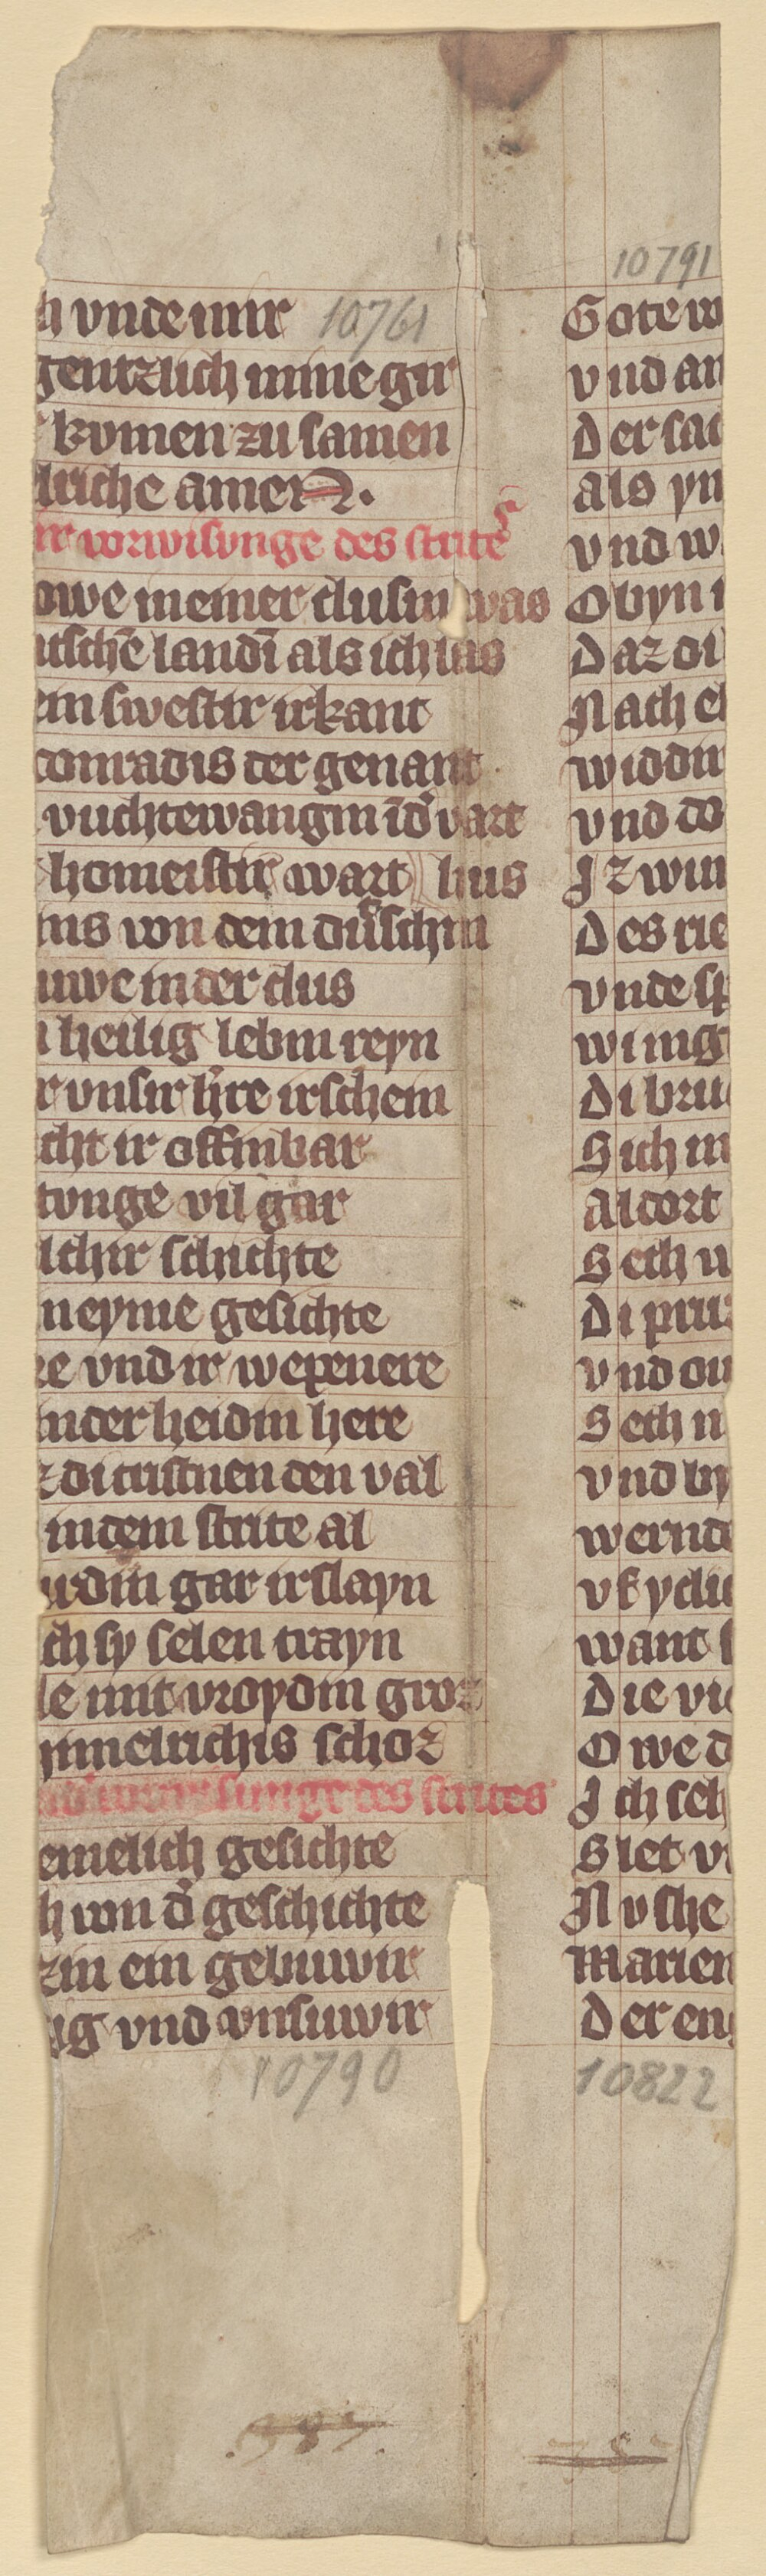 h vnde mir 10761
gentzlich mine gir
kvmen zu samen
lriche amen.
ir vorwisvnge des strites
owe in einer clusin was
utschē landī als ich las
ein swestir irkant
conradis der genant
vuchtewangin ī d' vart
homeistir wart hus
ins von dem dūschin
uwe in der clus
heilig lebin reyn
r vnsir h're irschein
cht ir offinbar
tvnge vil gar
lchir schichte
n eyme gesichte
re vnd ir wepenere
in der heidin here
z di cristnen den val
in dem strite al
urdin gar irslayn
ch sy selen trayn
le mit vroydin groz
ymelrichis schoz
sunge des strites
emelich gesichte
h von d' geschichte
zin ein gebuwir
ig vnd vnsuwir
10790
10791
Gote w
vnd an
Der sac
als yn
vnd w
Obyn i
Daz di
Nach el
widdir
vnd do
Iz win
Des rie
vnde sp
winig
Di bru
Sich in
Aldort
Sech u
Di pru
vnd ou
Sech n
vnd by
wernd
vf yclic
want s
Die vie
Owe d
Ich seh
Slet vi
Nv she
Marien
Der eng
10822